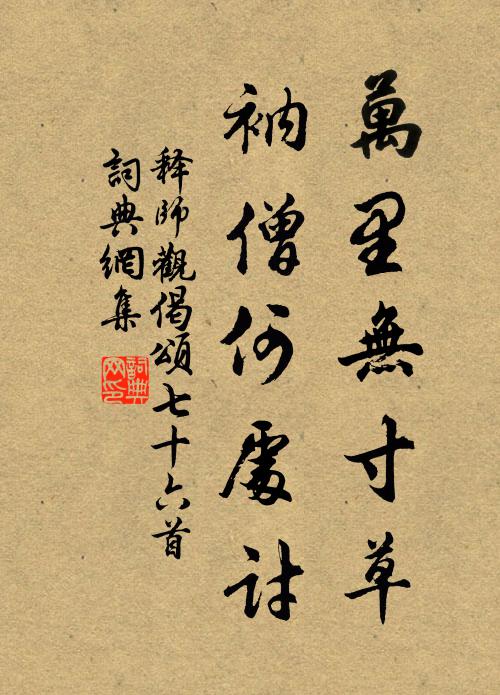 萬里無寸草
衲僧何處討
释師觀偈頌七十六首
詞典網集
詞典
网印